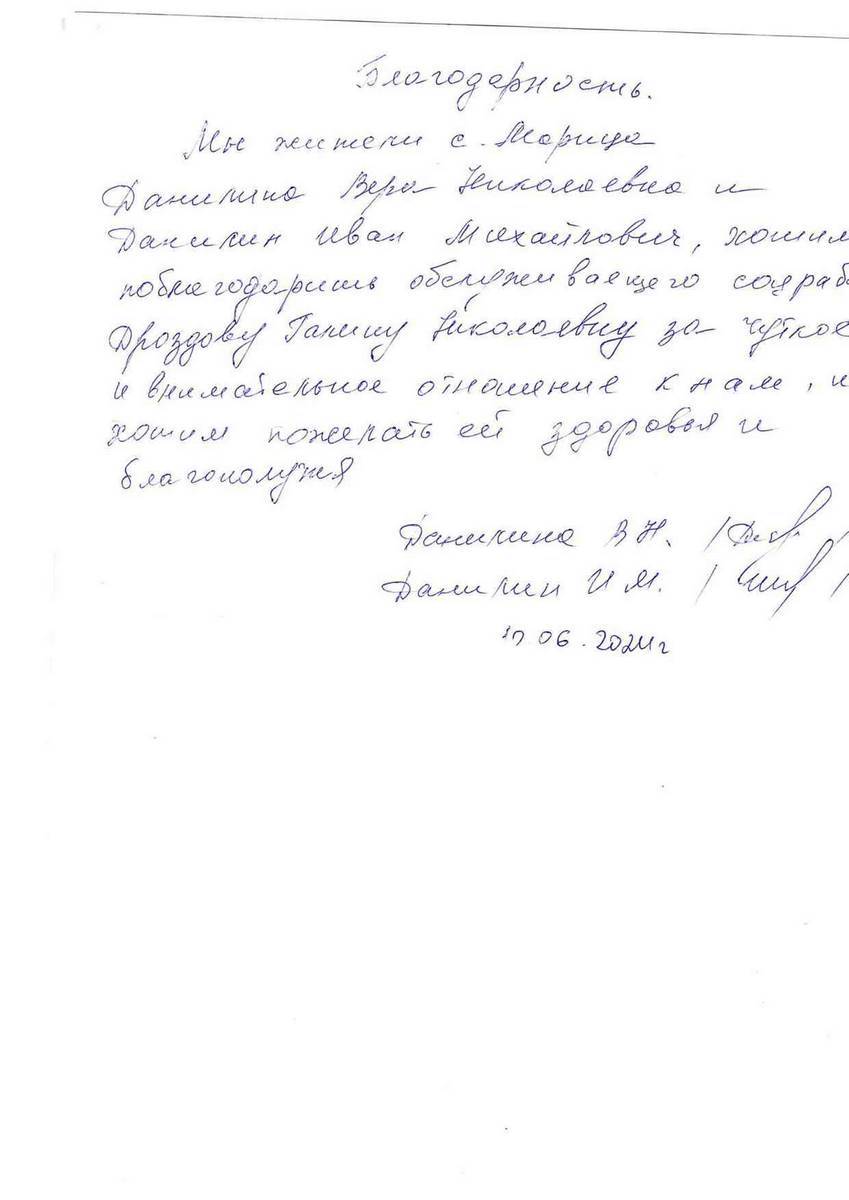 Благодарность.
Мы жители с. Марица
Данилина Вера Николаевна и
Данилин Иван Михайлович, хотим
поблагодарить обслуживаещего соцраб
Дроздову Галину Николаевну за чуткое
и внимательное отношение к нам, и
хотим пожелать ей здоровья и
благополучия
Данилина В Н.
Данилин И М.
06.2024г